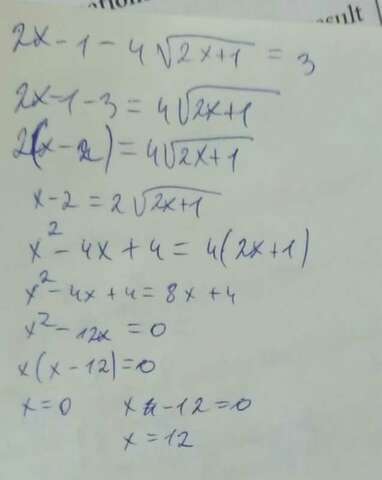 sult
2x - 1 - 4√(2x+1) = 3
2x - 1 - 3 = 4√(2x+1)
2(x - 2) = 4√(2x+1)
x - 2 = 2√(2x+1)
x² - 4x + 4 = 4(2x+1)
x² - 4x + 4 = 8x + 4
x² - 12x = 0
x(x - 12) = 0
x = 0 x - 12 = 0
x = 12